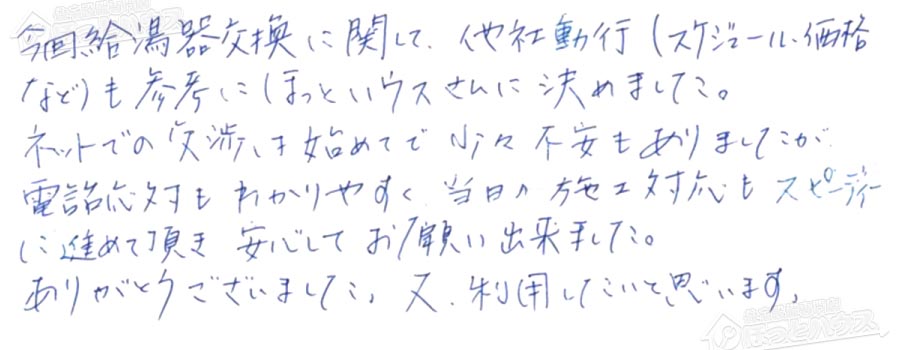 今回給湯器交換に関して、他社動行(スケジュール、価格
など)も参考にほっとハウスさんに決めました。
ネットでの交渉も始めてで少々不安もありましたが
電話応対もわかりやすく当日の施工対応もスピーディー
に進めて頂き安心してお願い出来ました。
ありがとうございました。又、利用したいと思います。
ほっとハウス